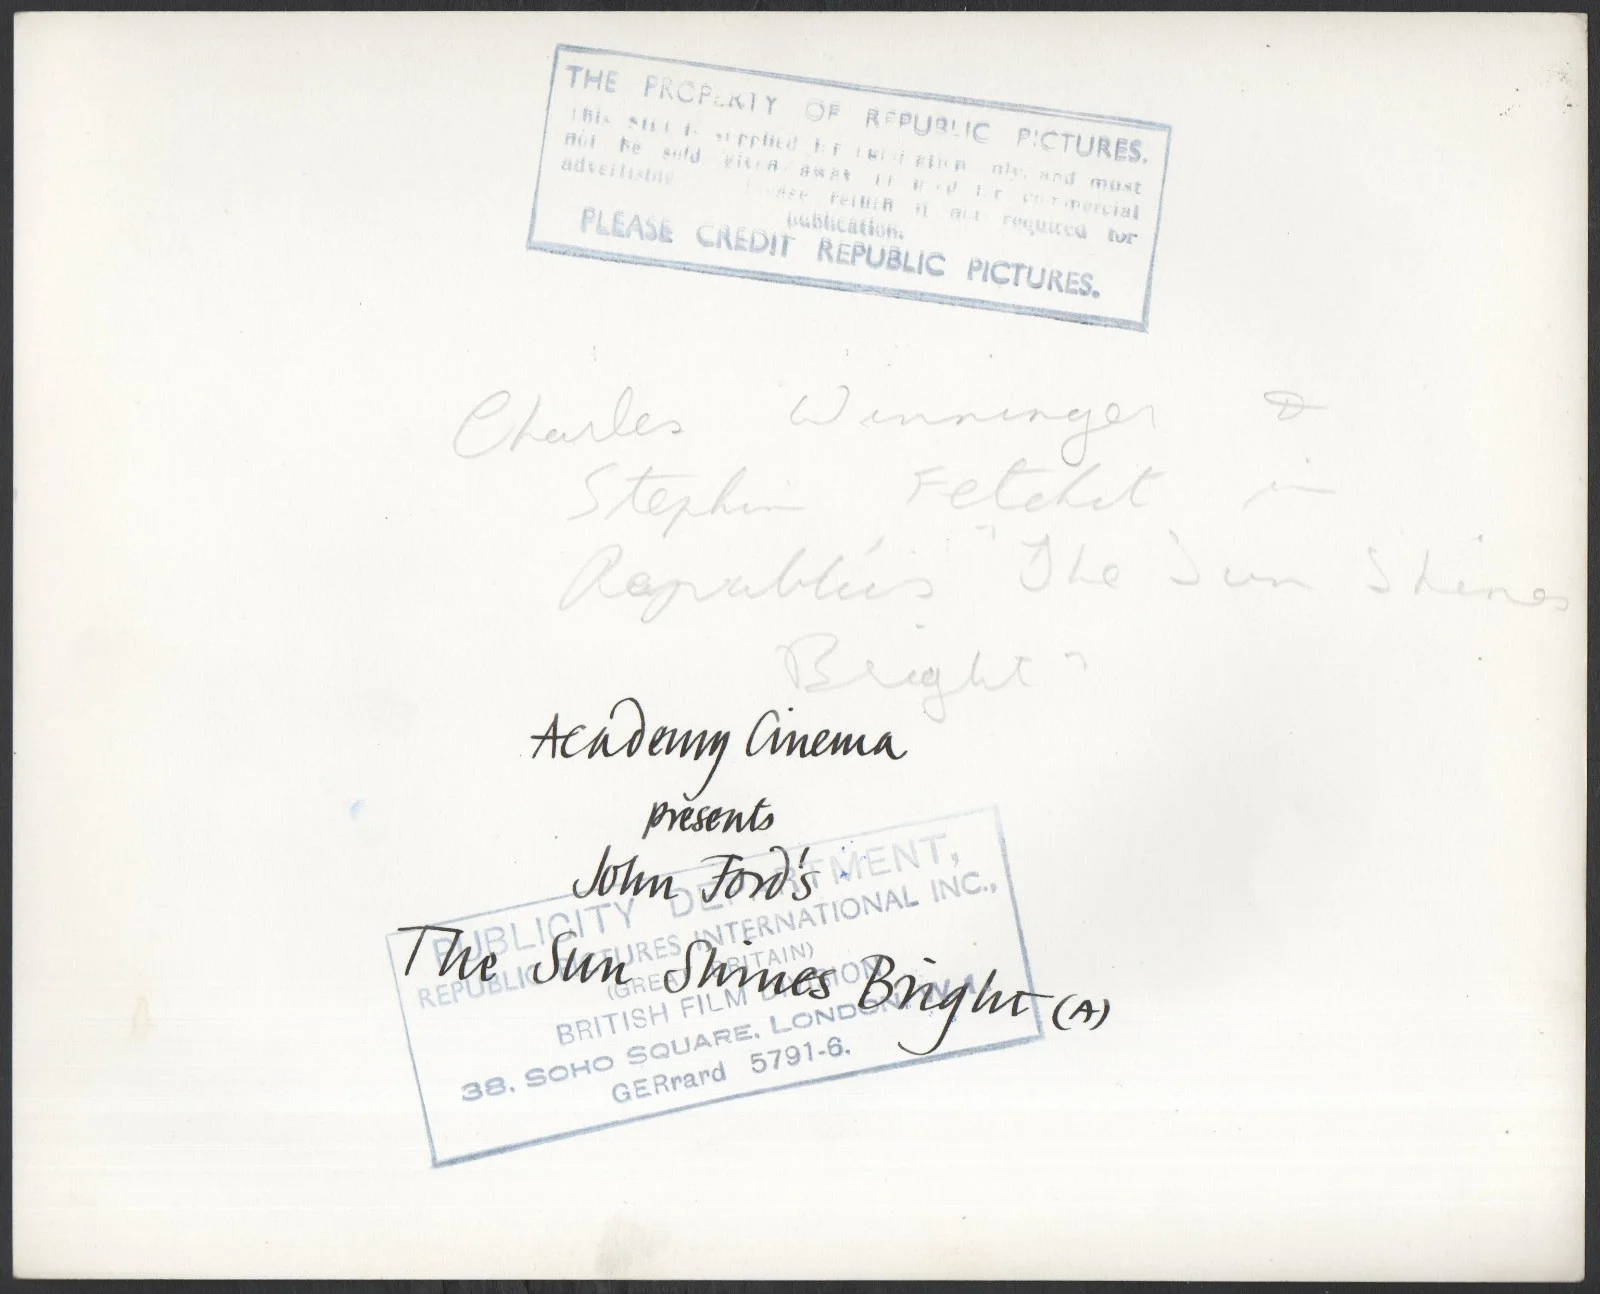 THE PROPERTY OF REPUBLIC PICTURES.
This still is supplied for publication only, and must
not be sold given away or used for commercial
advertising. Please return if not required for
publication.
PLEASE CREDIT REPUBLIC PICTURES.
Charles Winninger &
Stephin Fetchit in
Republic's "The Sun Shines
Bright"
Academy Cinema
presents
John Ford's
The Sun Shines Bright (A)
PUBLICITY DEPARTMENT,
REPUBLIC PICTURES INTERNATIONAL INC.,
(GREAT BRITAIN)
BRITISH FILM DIVISION
38, SOHO SQUARE, LONDON, W.1.
GERrard 5791-6.